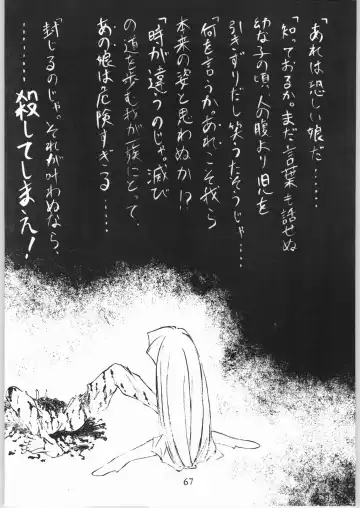 「あれは恐しい娘だ……
「知っておるか。まだ言葉も話せぬ
幼な子の頃、人の腹より児を
引きずりだし笑うたそうじゃ……
「何を言うか。あれこそ我ら
本来の姿と思わぬか!?
「時が違うのじゃ。滅び
の道を歩むわが一族にとって
あの娘は危険すぎる……
………封じるのじゃ。それが叶わぬなら、
………殺してしまえ!
67